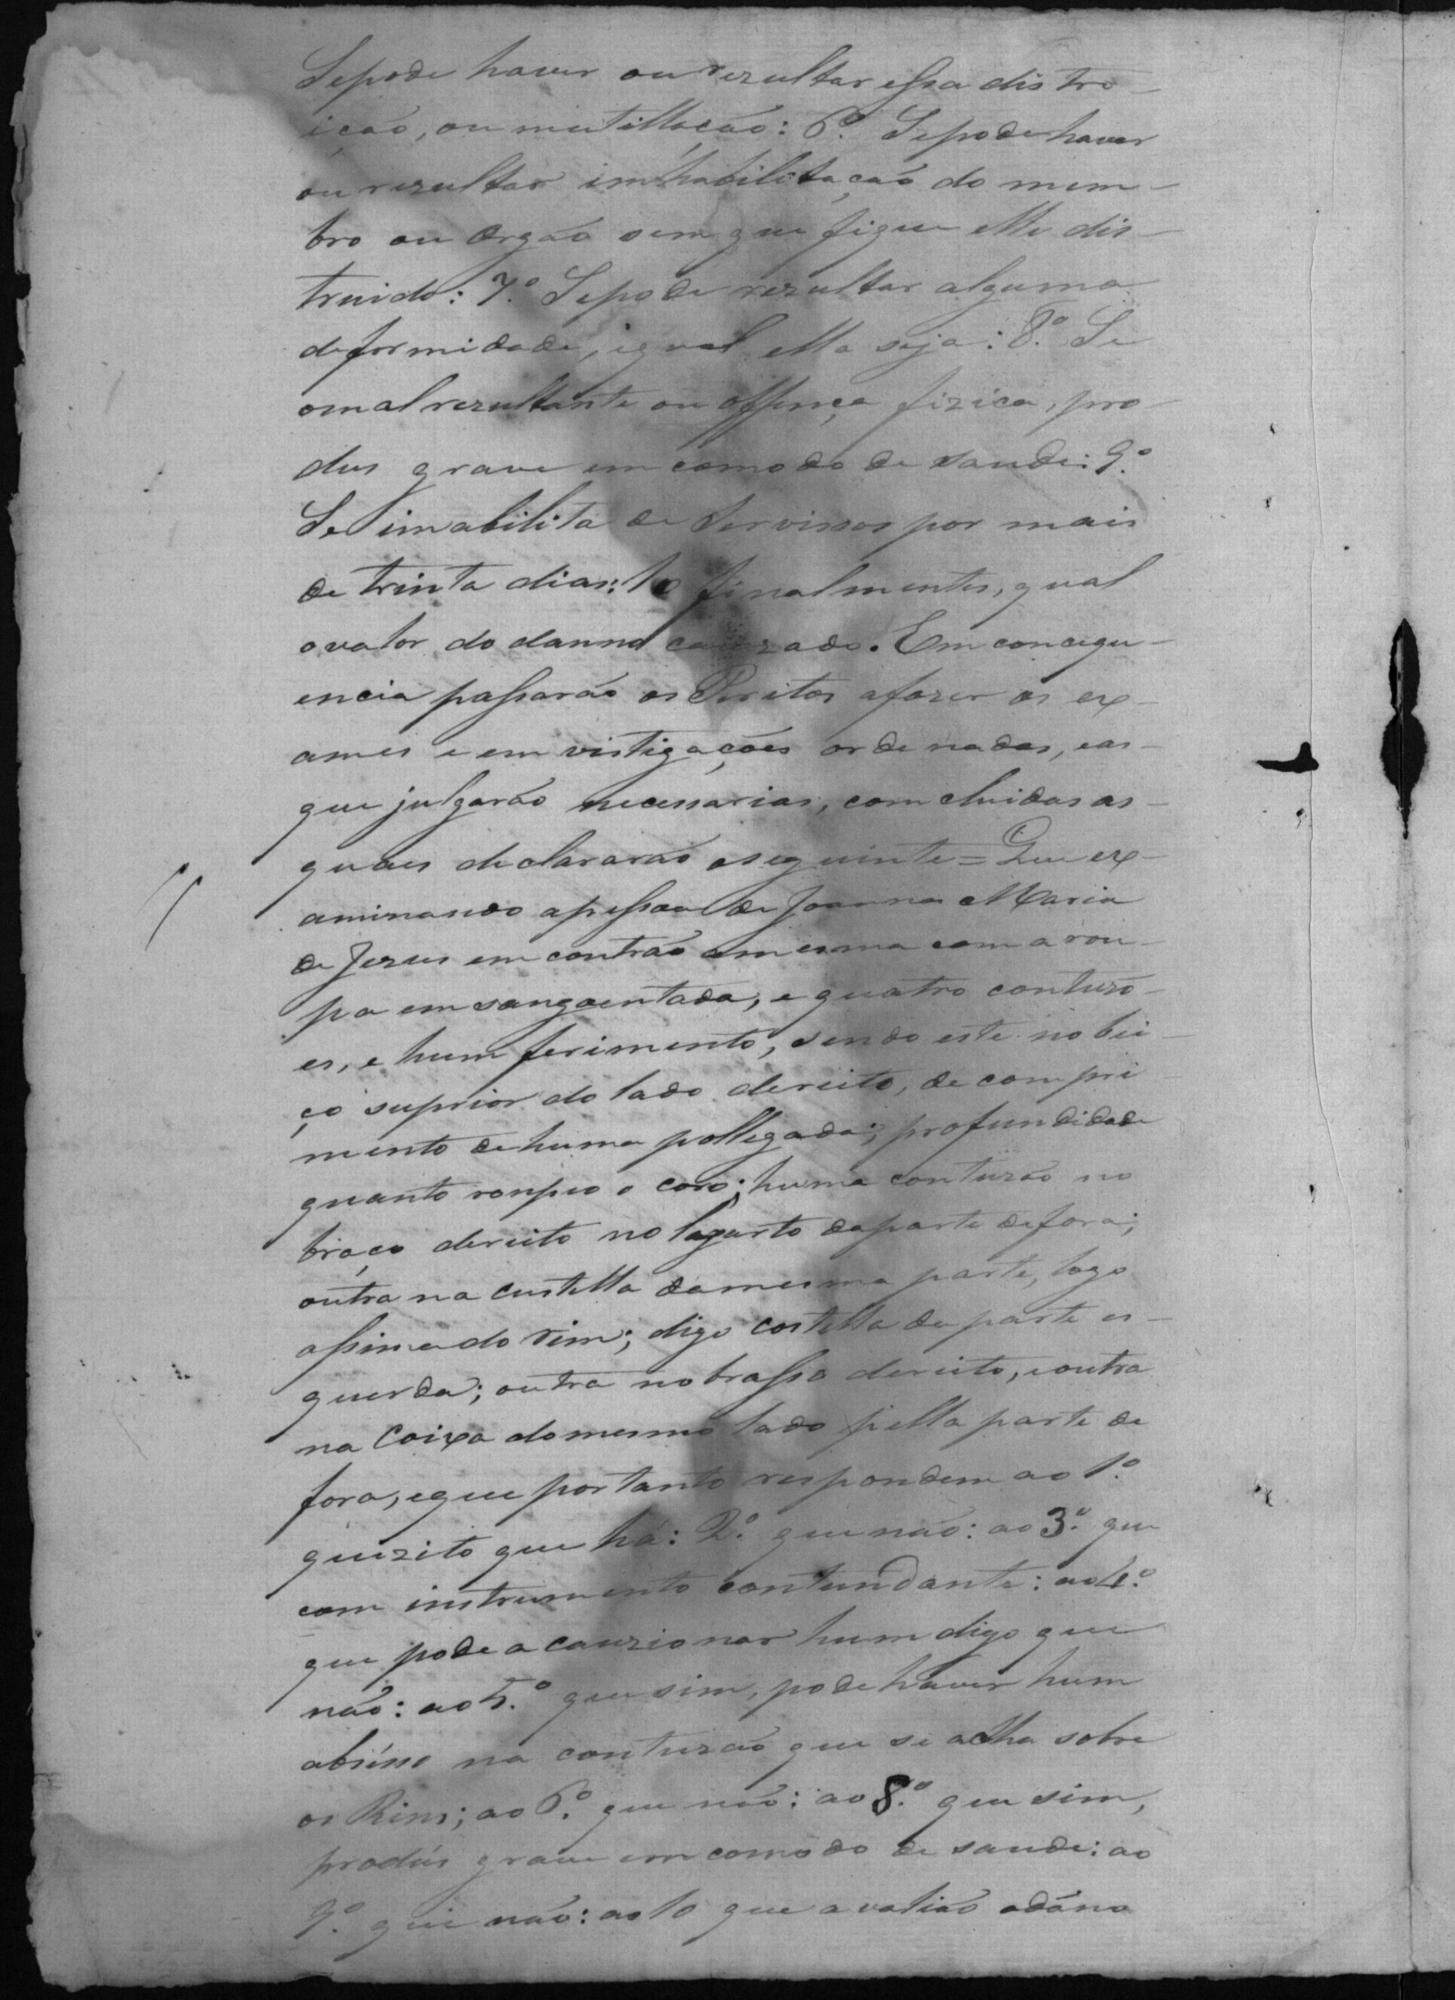 Se pode haver ou rezultar essa distro-
ição, ou mutillação: 6º. Se pode haver
ou rezultar imhabilitação do mem-
bro ou orgão sem que fique elle dis-
truido: 7º. Se pode rezultar alguma
deformidade, iqual ella seja: 8º. Se
o mal rezultante ou offença fizica, pro-
dus grave emcomodo de saude: 9º.
Se imabilita de servissos por mais
de trinta dias: 10 finalmentes, qual
o valor do danno cauzado. Em concequ-
encia passarão os Peritos a fazer os ex-
ames e emvistigações ordenadas, e as
que julgarão necessarias, comcluidas as
quaes declararão o seguinte = Que ex-
aminando a pessoa de Joanna Maria
de Jezus emcontrão a mesma com a rou-
pa emsangoentada, e quatro contuzõ-
es, e hum ferimento, sendo este no bei-
ço suprior do lado dereito, de compri
mento de huma pollegada; profundidade
quanto ronpeo o coro; huma contuzão no
braço dereito no lagarto da parte de fora;
outra na custella da mesma parte, logo
assima do rim; digo costella da parte es-
querda; outra no brasso dereito, e outra
na Coixa do mesmo lado pella parte de
fora, e que portanto respondem ao 1º.
quezito que há: 2º. que não: ao 3º. que
com instrumento contundante: ao 4º.
que pode acauzionar hum digo que
não: ao 5.º que sim, pode haver hum
absésso na contuzão que se acha sobre
os Rins; ao 6º. que não: ao 8.º que sim,
prodús grave emcomodo de saude: ao
9º. que não: ao 10 que avalião o dâno